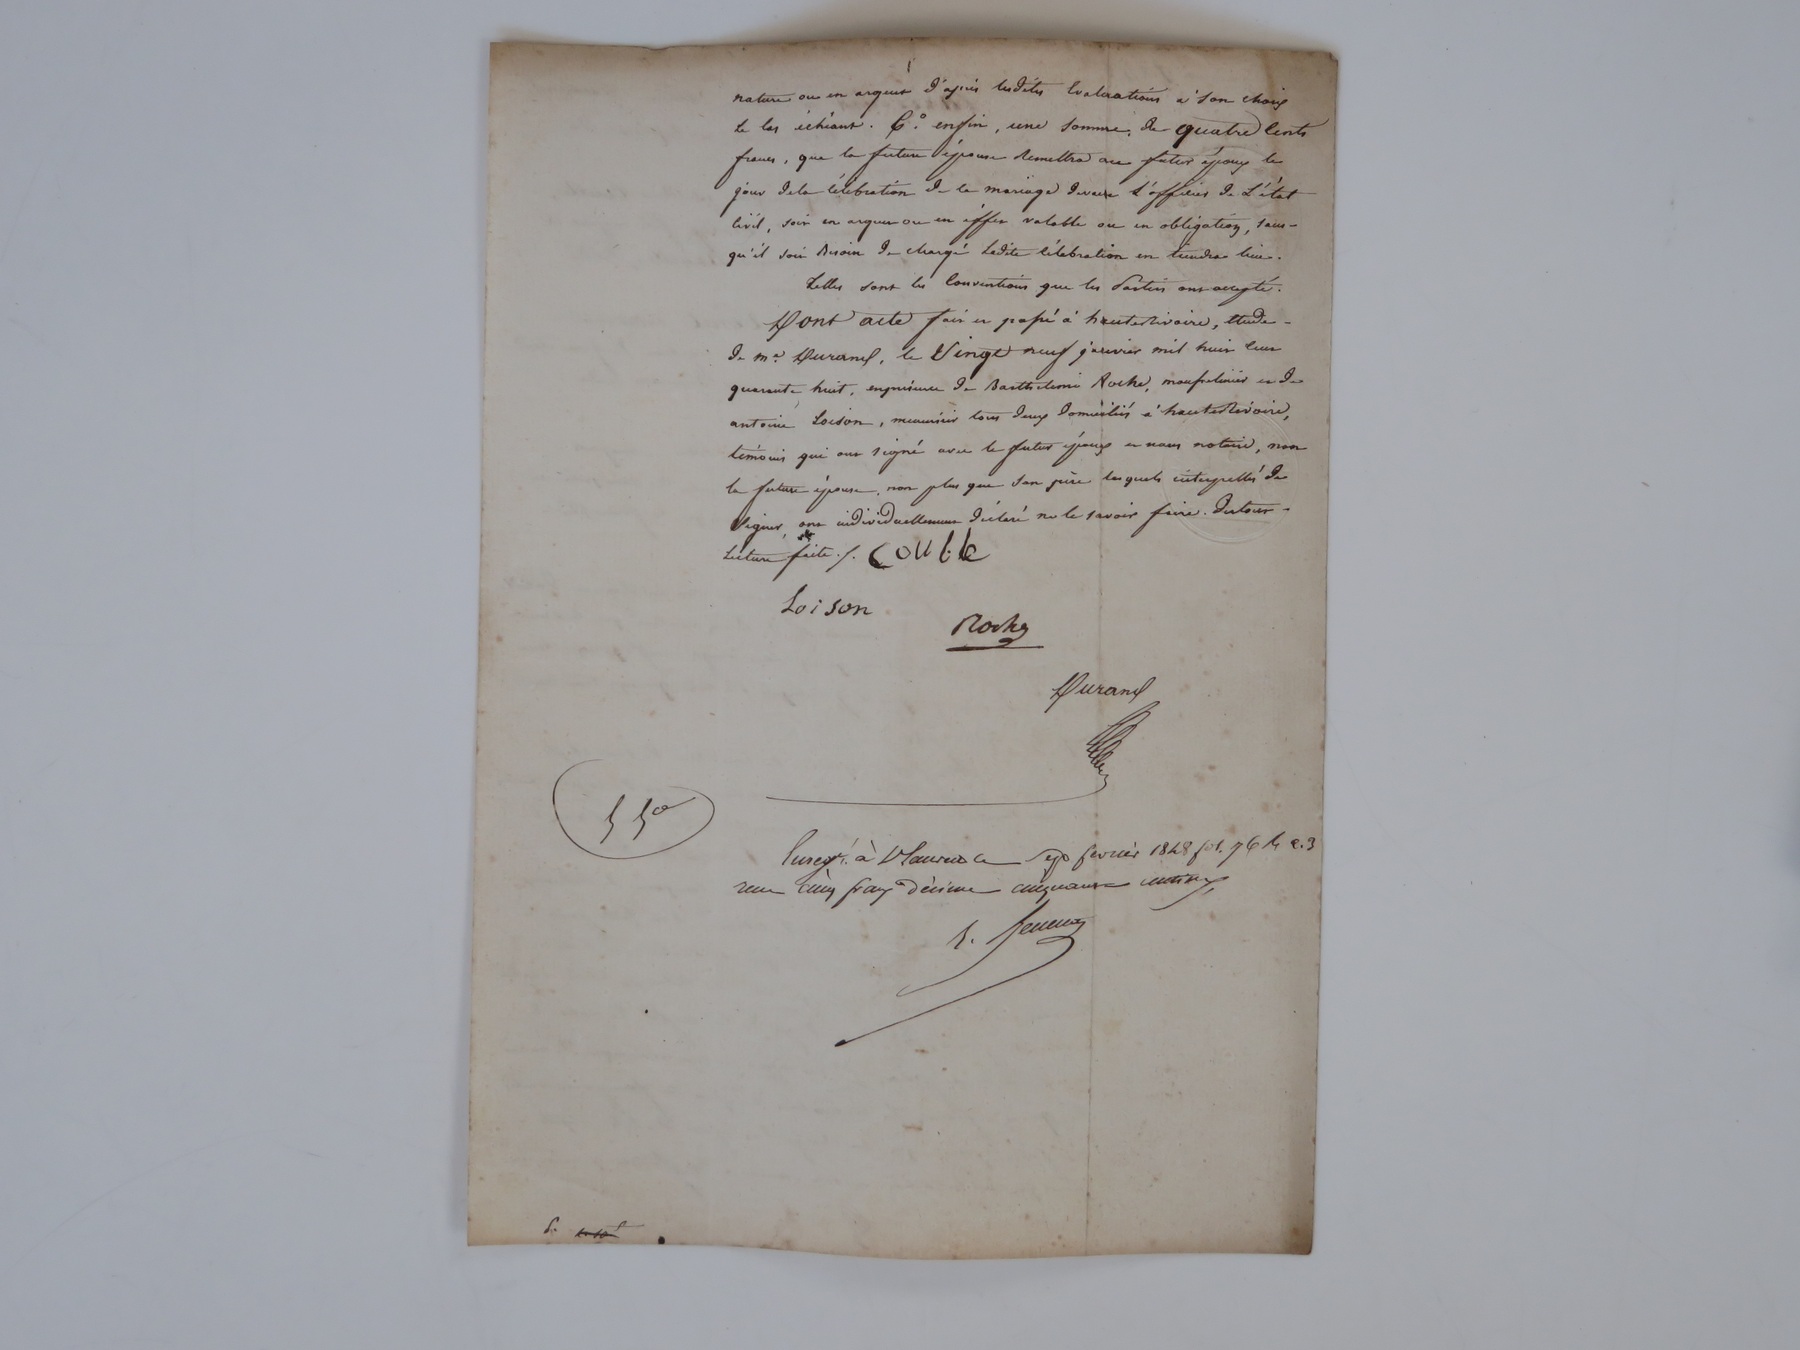 nature ou en argent d'après lesdites Evaluations à son choix
le cas échéant. 6.° enfin, une somme, de quatre Cents
francs, que la future épouse Remettra au futur époux le
jour dela célébration de ce mariage devant L'officier de L'état
Civil, soit en argent ou en effet valable ou en obligation, sans-
qu'il soit Besoin de chargé Ladite célébration en tiendra lieu.
Telles sont les Conventions que les Parties ont accepté.
Dont acte fait et passé à hauterivoire, Etude-
de me. Durand, le Vingt neuf janvier mil huit Cent
quarante huit, enprésence de Barthelemi Roche, et de
antoine Loison, menuisier tous deux Domiciliés à hauterivoire,
témoins qui ont signé avec le futur époux et nous notaire, non
la future épouse, non plus que son père lesquels interpellés de
signer, ont individuellement déclaré ne le savoir faire. Dutout-
Lecture faite./. Couble
Loison
Roche
Durand
Enregt. à St Laurent Ce Sept fevrier 1848 fol. 76 c. 3
recu cinq francs décime cinquante centimes